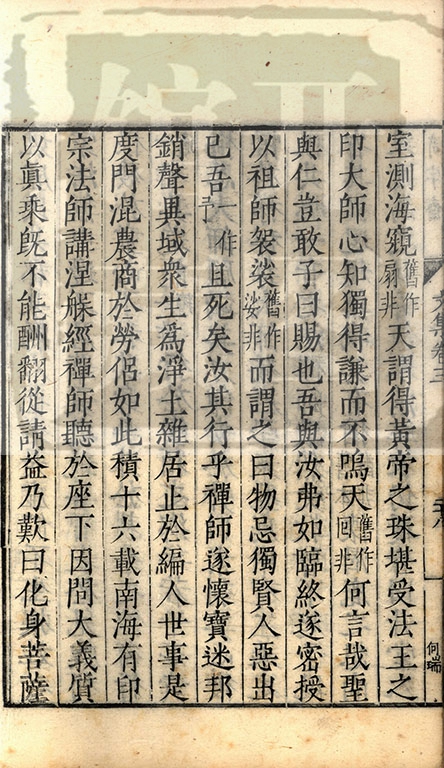 室測海窺舊作扇非天謂得黃帝之珠堪受法王之
印大師心知獨得謙而不鳴天舊作回非何言哉聖
與仁豈敢子曰賜也吾與汝弗如臨終遂密授
以祖師袈裟舊作娑非而謂之曰物忌獨賢人惡出
已吾一作予且死矣汝其行乎禪師遂懷寶迷邦
銷聲異域衆生為淨土雜居止於編人世事是
度門混農商於勞侶如此積十六載南海有印
宗法師講涅槃經禪師聽於座下因問大義質
以真乘旣不能酬翻從請益乃歎曰化身菩薩
卷三
何瑞